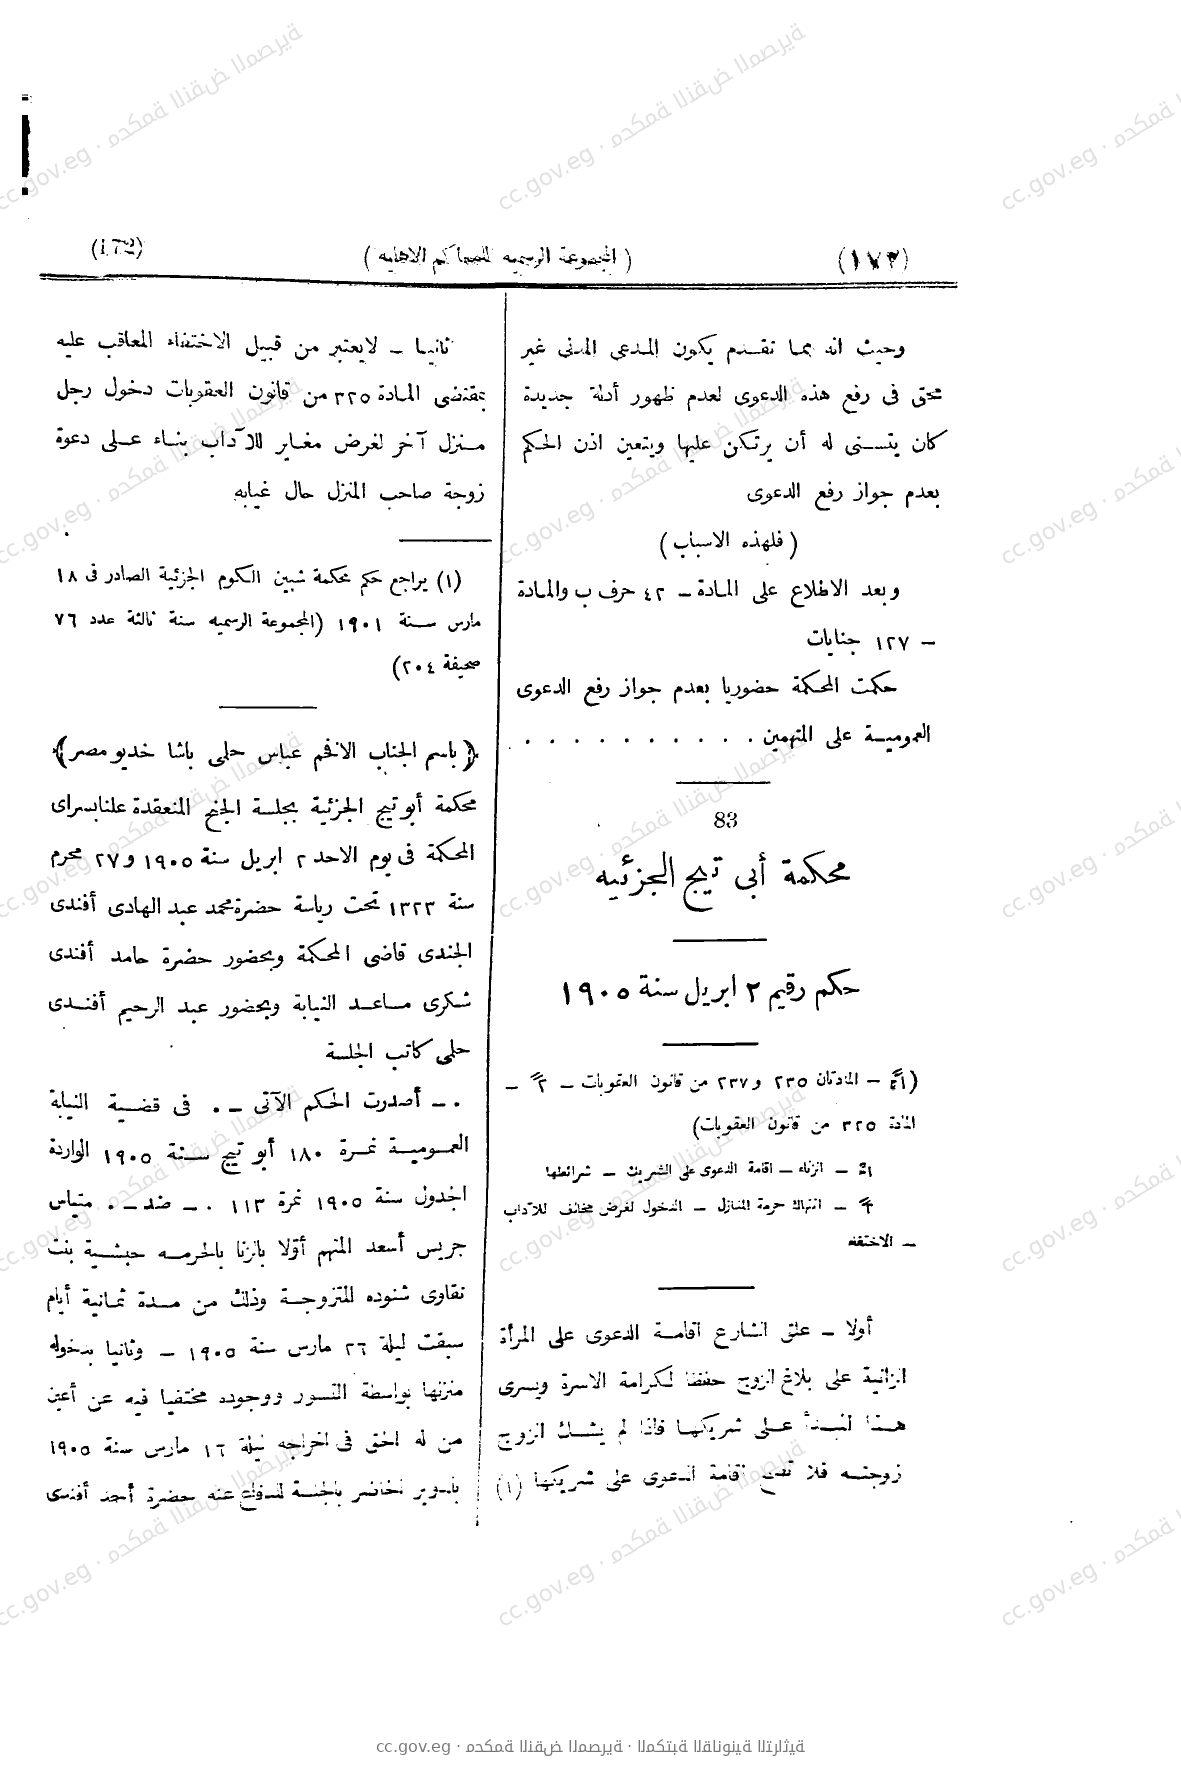 (١٧٢)
( المجموعة الرسميه للمحاكم الاهليه )
(172)
وحيث انه مما تقدم يكون المدعى المدنى غير
محق فى رفع هذه الدعوى لعدم ظهور أدلة جديدة
كان يتسنى له أن يرتكن عليها ويتعين اذن الحكم
بعدم جواز رفع الدعوى
( فلهذه الاسباب )
وبعد الاطلاع على المادة – ٤٢ حرف ب والمادة
– ١٢٧ جنايات
حكمت المحكمة حضوريا بعدم جواز رفع الدعوى
العمومية على المتهمين . . . . . . . . . .
83
محكمة أبى تيج الجزئيه
حكم رقيم ٢ ابريل سنة ١٩٠٥
– المادتان ٢٣٥ و٢٣٧ من قانون العقوبات – ٢ –
المادة ٣٢٥ من قانون العقوبات)
١ – الزناء – اقامة الدعوى على الشريك – شرائطها
٢ – انتهاك حرمة المنازل – الدخول لغرض مخالف للآداب
– الاختفاء
أولا – علق الشارع اقامة الدعوى على المرأة
الزانية على بلاغ الزوج حفظا لكرامة الاسرة ويسرى
هذا المبدأ على شريكها فاذا لم يشك الزوج
زوجته فلا تصح اقامة الدعوى على شريكها (١)
ثانيا – لايعتبر من قبيل الاختفاء المعاقب عليه
بمقتضى المادة ٣٢٥ من قانون العقوبات دخول رجل
منزل آخر لغرض مغاير للآداب بناء على دعوة
زوجة صاحب المنزل حال غيابه
(١) يراجع حكم محكمة شبين الكوم الجزئية الصادر فى ١٨
مارس سنة ١٩٠١ (المجموعة الرسميه سنة ثالثة عدد ٧٦
صحيفة ٢٠٤)
﴿ باسم الجناب الافخم عباس حلمى باشا خديو مصر ﴾
محكمة أبو تيج الجزئية بجلسة الجنح المنعقدة علنا بسراى
المحكمة فى يوم الاحد ٢ ابريل سنة ١٩٠٥ و٢٧ محرم
سنة ١٣٢٣ تحت رياسة حضرة محمد عبد الهادى أفندى
الجندى قاضى المحكمة وبحضور حضرة حامد أفندى
شكرى مساعد النيابة وبحضور عبد الرحيم أفندى
حلمى كاتب الجلسة
٠ – أصدرت الحكم الآتى – ٠ فى قضية النيابة
العمومية نمرة ١٨٠ أبو تيج سنة ١٩٠٥ الواردة
الجدول سنة ١٩٠٥ نمرة ١١٣ ٠ – ضد – ٠ متياس
جريس أسعد المتهم أولا بالزنا بالحرمه حبشية بنت
نقاوى شنوده المتزوجة وذلك من مدة ثمانية أيام
سبقت ليلة ٢٦ مارس سنة ١٩٠٥ – وثانيا بدخوله
منزلها بواسطة التسور ووجوده مختفيا فيه عن أعين
من له الحق فى اخراجه ليلة ١٦ مارس سنة ١٩٠٥
بالدوير الحاضر بالجلسة للدفاع عنه حضرة أحمد أفندى